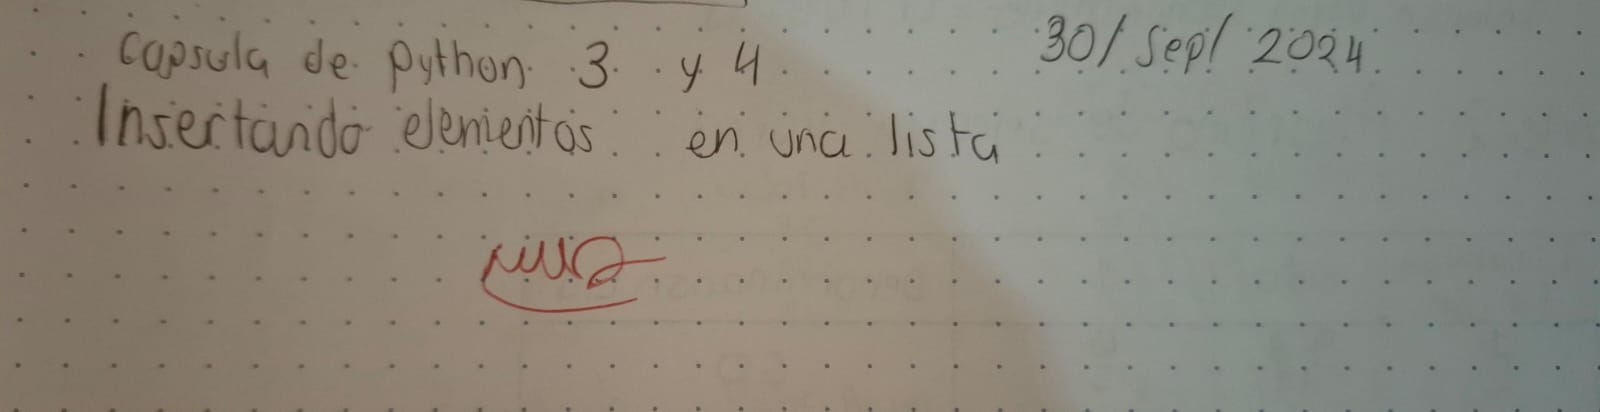 Capsula de python 3 y 4 30/Sep/2024
Insertando elementos en una lista